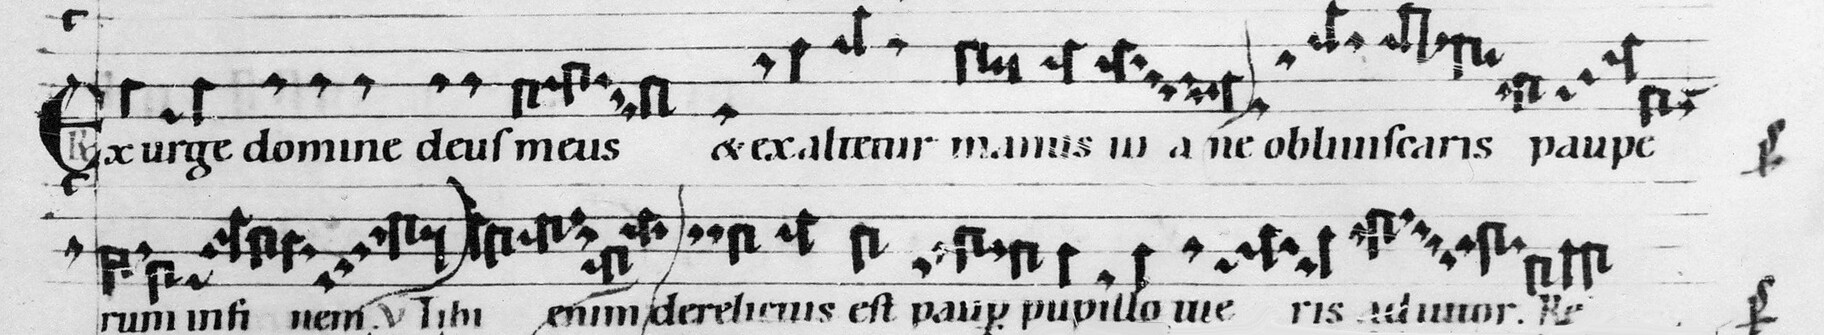 Exurge domine deuſ meus & exaltetur manus tua ne obliuiſcaris paupe
rum in fi nem. V Tibi enim derelictus eſt paup pupillo tue ris adiutor. Re